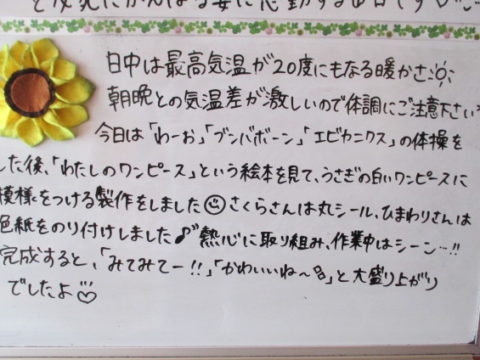 と友だにがんばる姿に感動する毎日です♡
日中は最高気温が20度にもなる暖かさ☼
朝晩との気温差が激しいので体調にご注意下さい
今日は「わーお」「ブンバボーン」「エビカニクス」の体操を
した後、「わたしのワンピース」という絵本を見て、うさぎの白いワンピースに
模様をつける製作をしました☺さくらさんは丸シール、ひまわりさんは
色紙をのり付けしました♪熱心に取り組み、作業中はシーン…!!
完成すると、「みてみてー!!」「かわいいね〜♡」と大盛り上がり
でしたよ♡